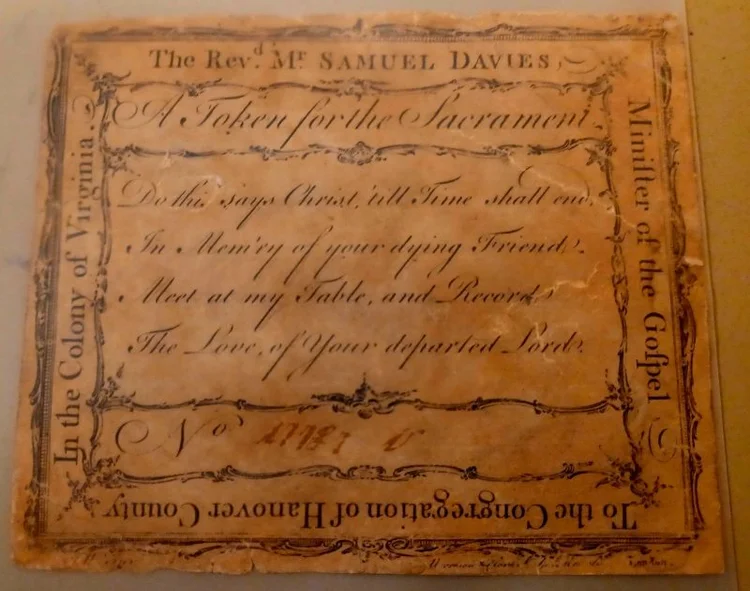 The Revd. Mr SAMUEL DAVIES
Miniſter of the Goſpel
To the Congregation of Hanover County,
In the Colony of Virginia.
A Token for the Sacrament.
Do this says Christ, 'till Time shall end,
In Mem'ry of your dying Friend.
Meet at my Table, and Record
The Love, of Your departed Lord.
No